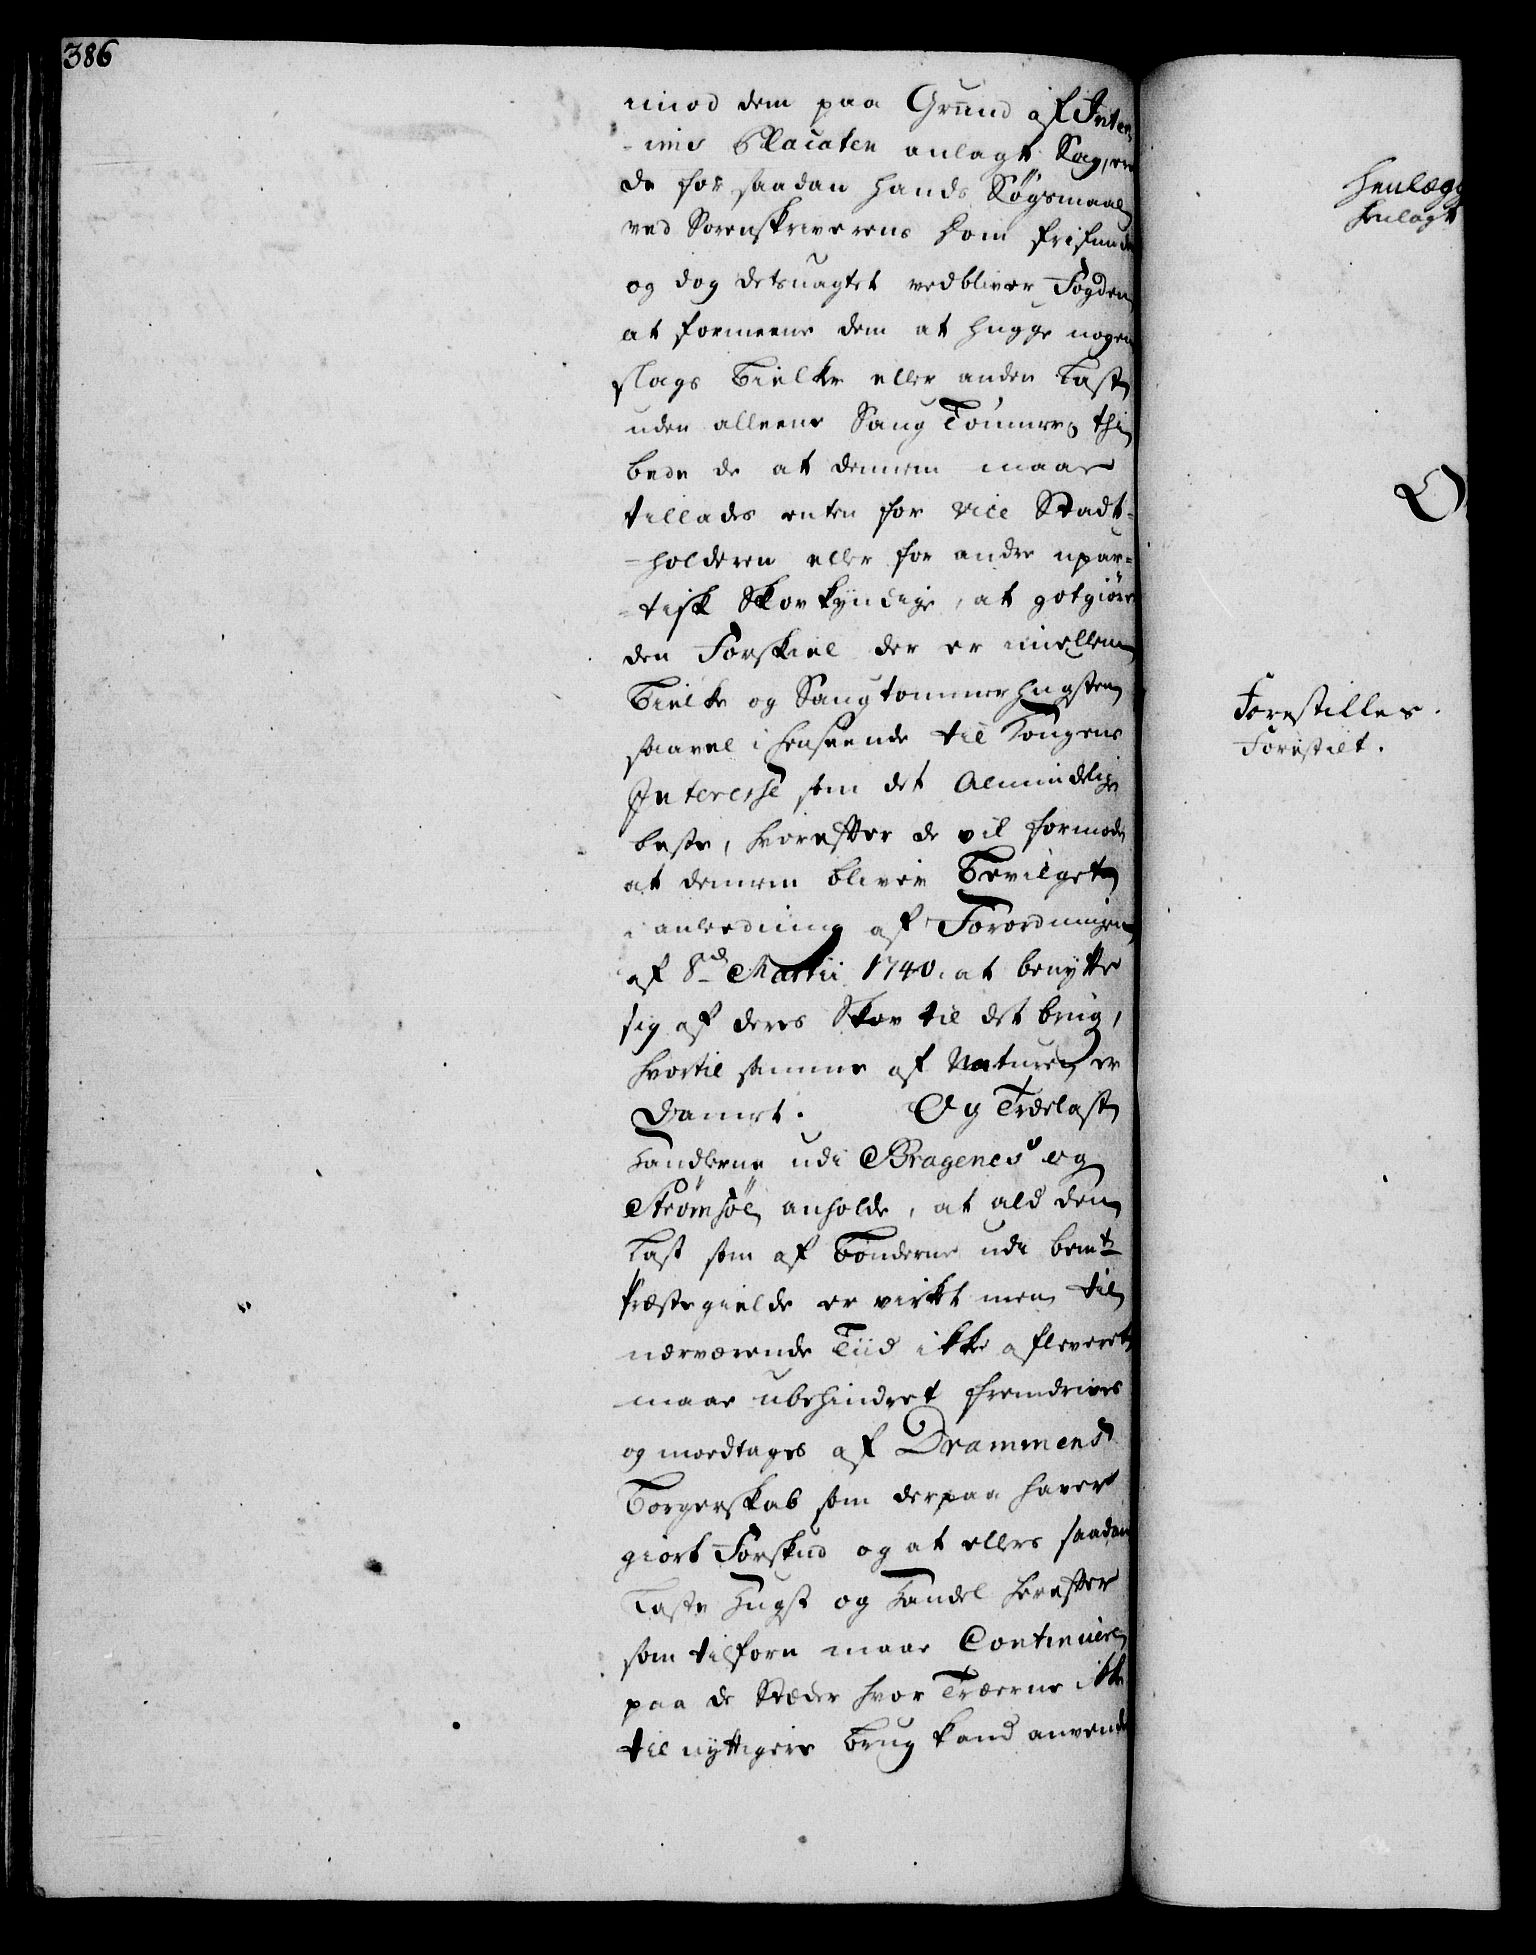 386
imod dem paa Grund af Inte=
=rims Placaten anlagt Sag, ere
de for saadan hands Søgsmaal
ved Sorenskriverens Dom frifunden
og dog detsuagtet vedbliver Fogden
at formeene dem at hugge nogen
slags Bielke eller anden Last
uden alleene Saug Tømmer, thi
bede de at dennem maae
tillades enten for Vice Stadt=
=holderen eller for andre upar=
=tisk Skovkyndige, at gotgiøre
den Forskiel der er imellem
Bielke og Saugtømmer Hugsten
saavel i henseende til Kongens
Interesse som det Almindelige
beste, hvorefter de vil formode
at dennem bliver Bevilget
i anledning af Forordningen
af 8de Martii 1740. at benytte
sig af deres Skov til det brug,
hvortil samme af Naturen er
Dannet. Og Trælast
Handlerne udi Bragenes og
Strømsøe anholde, at ald den
Last som af Bønderne udi bemte
Præstegielde er virket men til
nærværende Tiid ikke afleveret
maae ubehindret fremdrives
og modtages af Drammens
Borgerskab som derpaa haver
giort Forskud og at ellers saadan
Laste Hugst og Handel herefter
som tilforn maae Continuere
paa de Stæder hvor Træerne ikke
til nyttigere Brug kand anvende
Henlægg
Henlagt
Forestilles.
Forestilt.